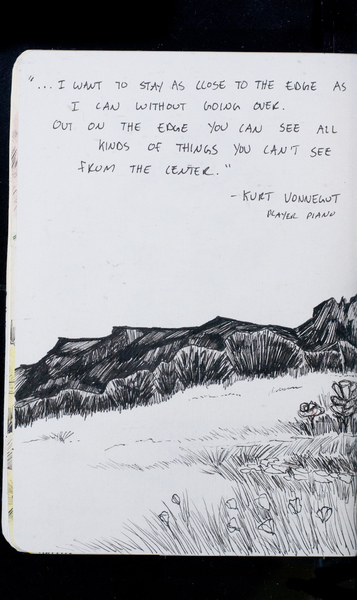 "... I WANT TO STAY AS CLOSE TO THE EDGE AS
I CAN WITHOUT GOING OVER.
OUT ON THE EDGE YOU CAN SEE ALL
KINDS OF THINGS YOU CAN'T SEE
FROM THE CENTER."
- KURT VONNEGUT
PLAYER PIANO